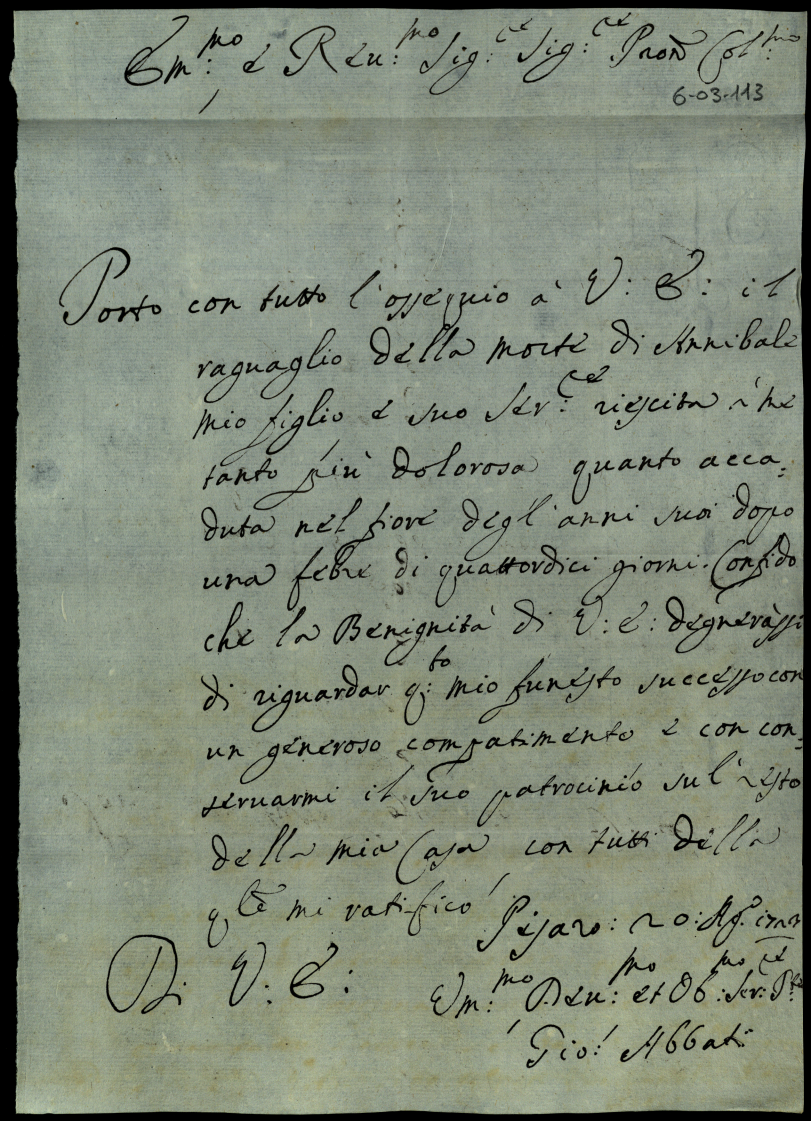 Em:mo e Reu:mo Sig:re Sig:re Pron Col:mo
6-03-113
Porto con tutto l'ossequio à V: E: il
raguaglio della morte di Annibale
mio figlio e suo Ser:re riescita à me
tanto più dolorosa quanto acca:
duta nel fiore degl'anni suoi dopo
una febre di quattordici giorni. Confido
che la Benignità di V: E: degneràssi
di riguardar q:to mio funesto successo con
un generoso compatimento e con con:
seruarmi il suo patrocinio sul resto
della mia Casa con tutti della
qle mi ratifico
Pesaro: 20: Ago:
Di V: E:
Vm:mo Deu:mo et Ob:mo Ser:re
Gio: Abbati